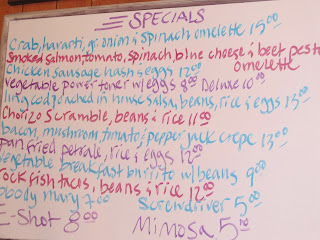 SPECIALS
Crab, havarti, gr. onion & spinach omelette 15.00
Smoked salmon, tomato, spinach, blue cheese & beef pesto
omelette
Chicken sausage hash & eggs 12.00
Vegetable power toner w/ eggs 8.00 Deluxe 10.00
ling cod poached in house salsa, beans, rice & eggs 13.00
Chorizo Scramble, beans & rice 11.00
bacon, mushroom, tomato, pepper jack crepe 13.00
pan fried petrale, rice & eggs 12.00
vegetable breakfast burrito w/ beans 9.00
rock fish tacos, beans & rice 12.00
bloody mary 7.00 Screwdriver 5.00
E-Shot 8.00 Mimosa 5.00